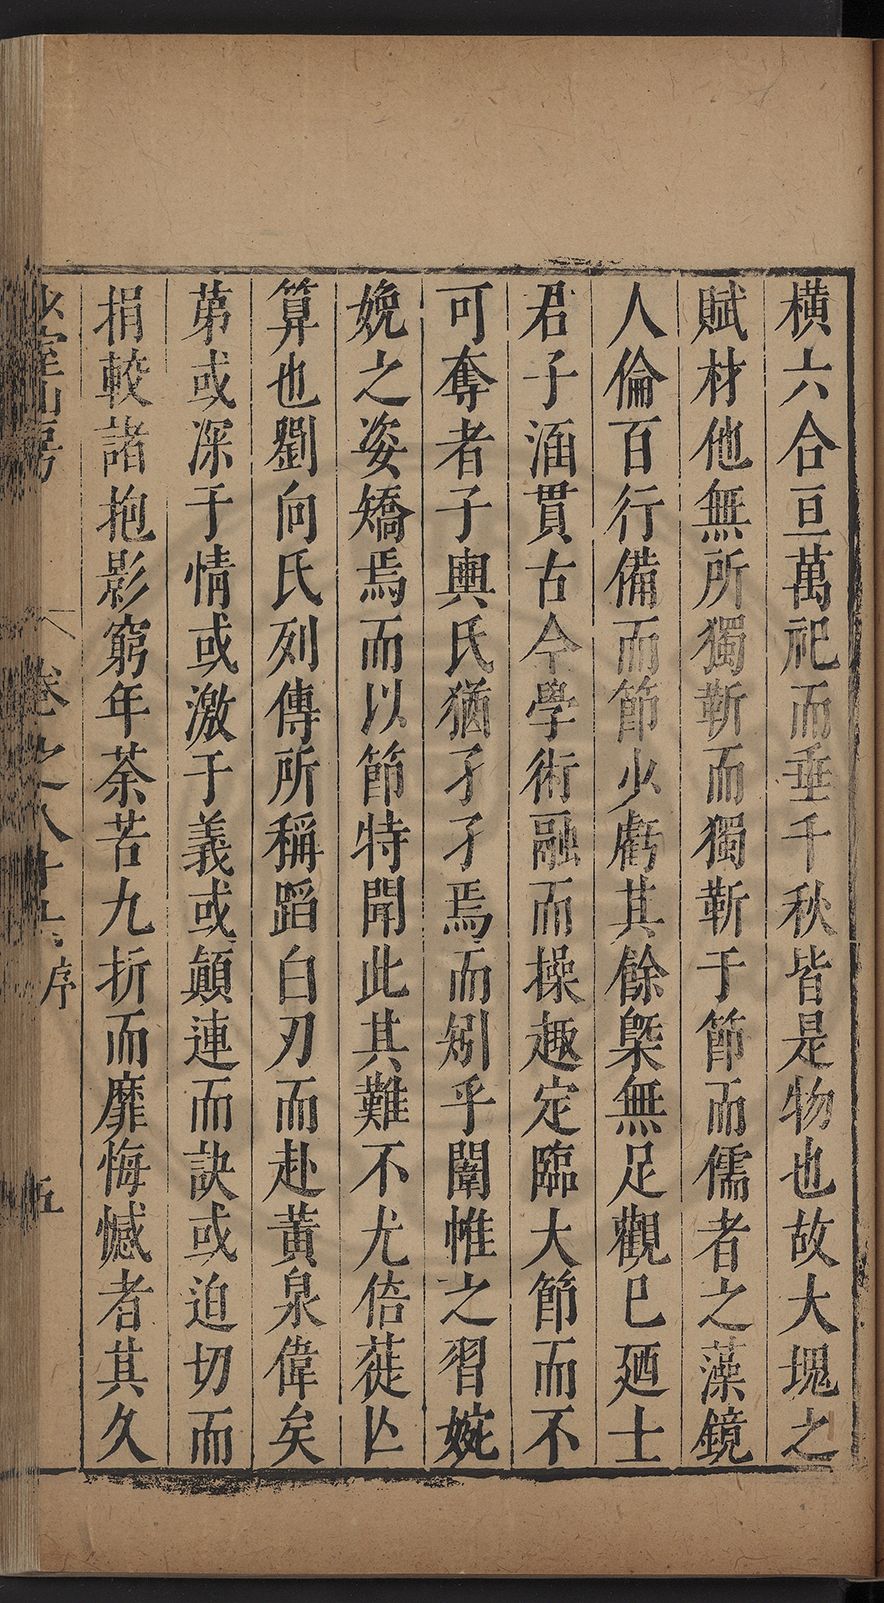 橫六合亘萬祀而垂千秋皆是物也故大塊之
賦材他無所獨靳而獨靳于節而儒者之藻鏡
人倫百行備而節少虧其餘槩無足觀已廼士
君子涵貫古今學術融而操趣定臨大節而不
可奪者子輿氏猶孑孑焉而矧乎閫帷之習婉
娩之姿矯焉而以節特聞此其難不尤倍蓰亾
算也劉向氏列傳所稱蹈白刃而赴黃泉偉矣
苐或深于情或激于義或顛連而訣或迫切而
捐較諸抱影窮年荼苦九折而靡悔憾者其久
少室山房 卷之八十六 序 五